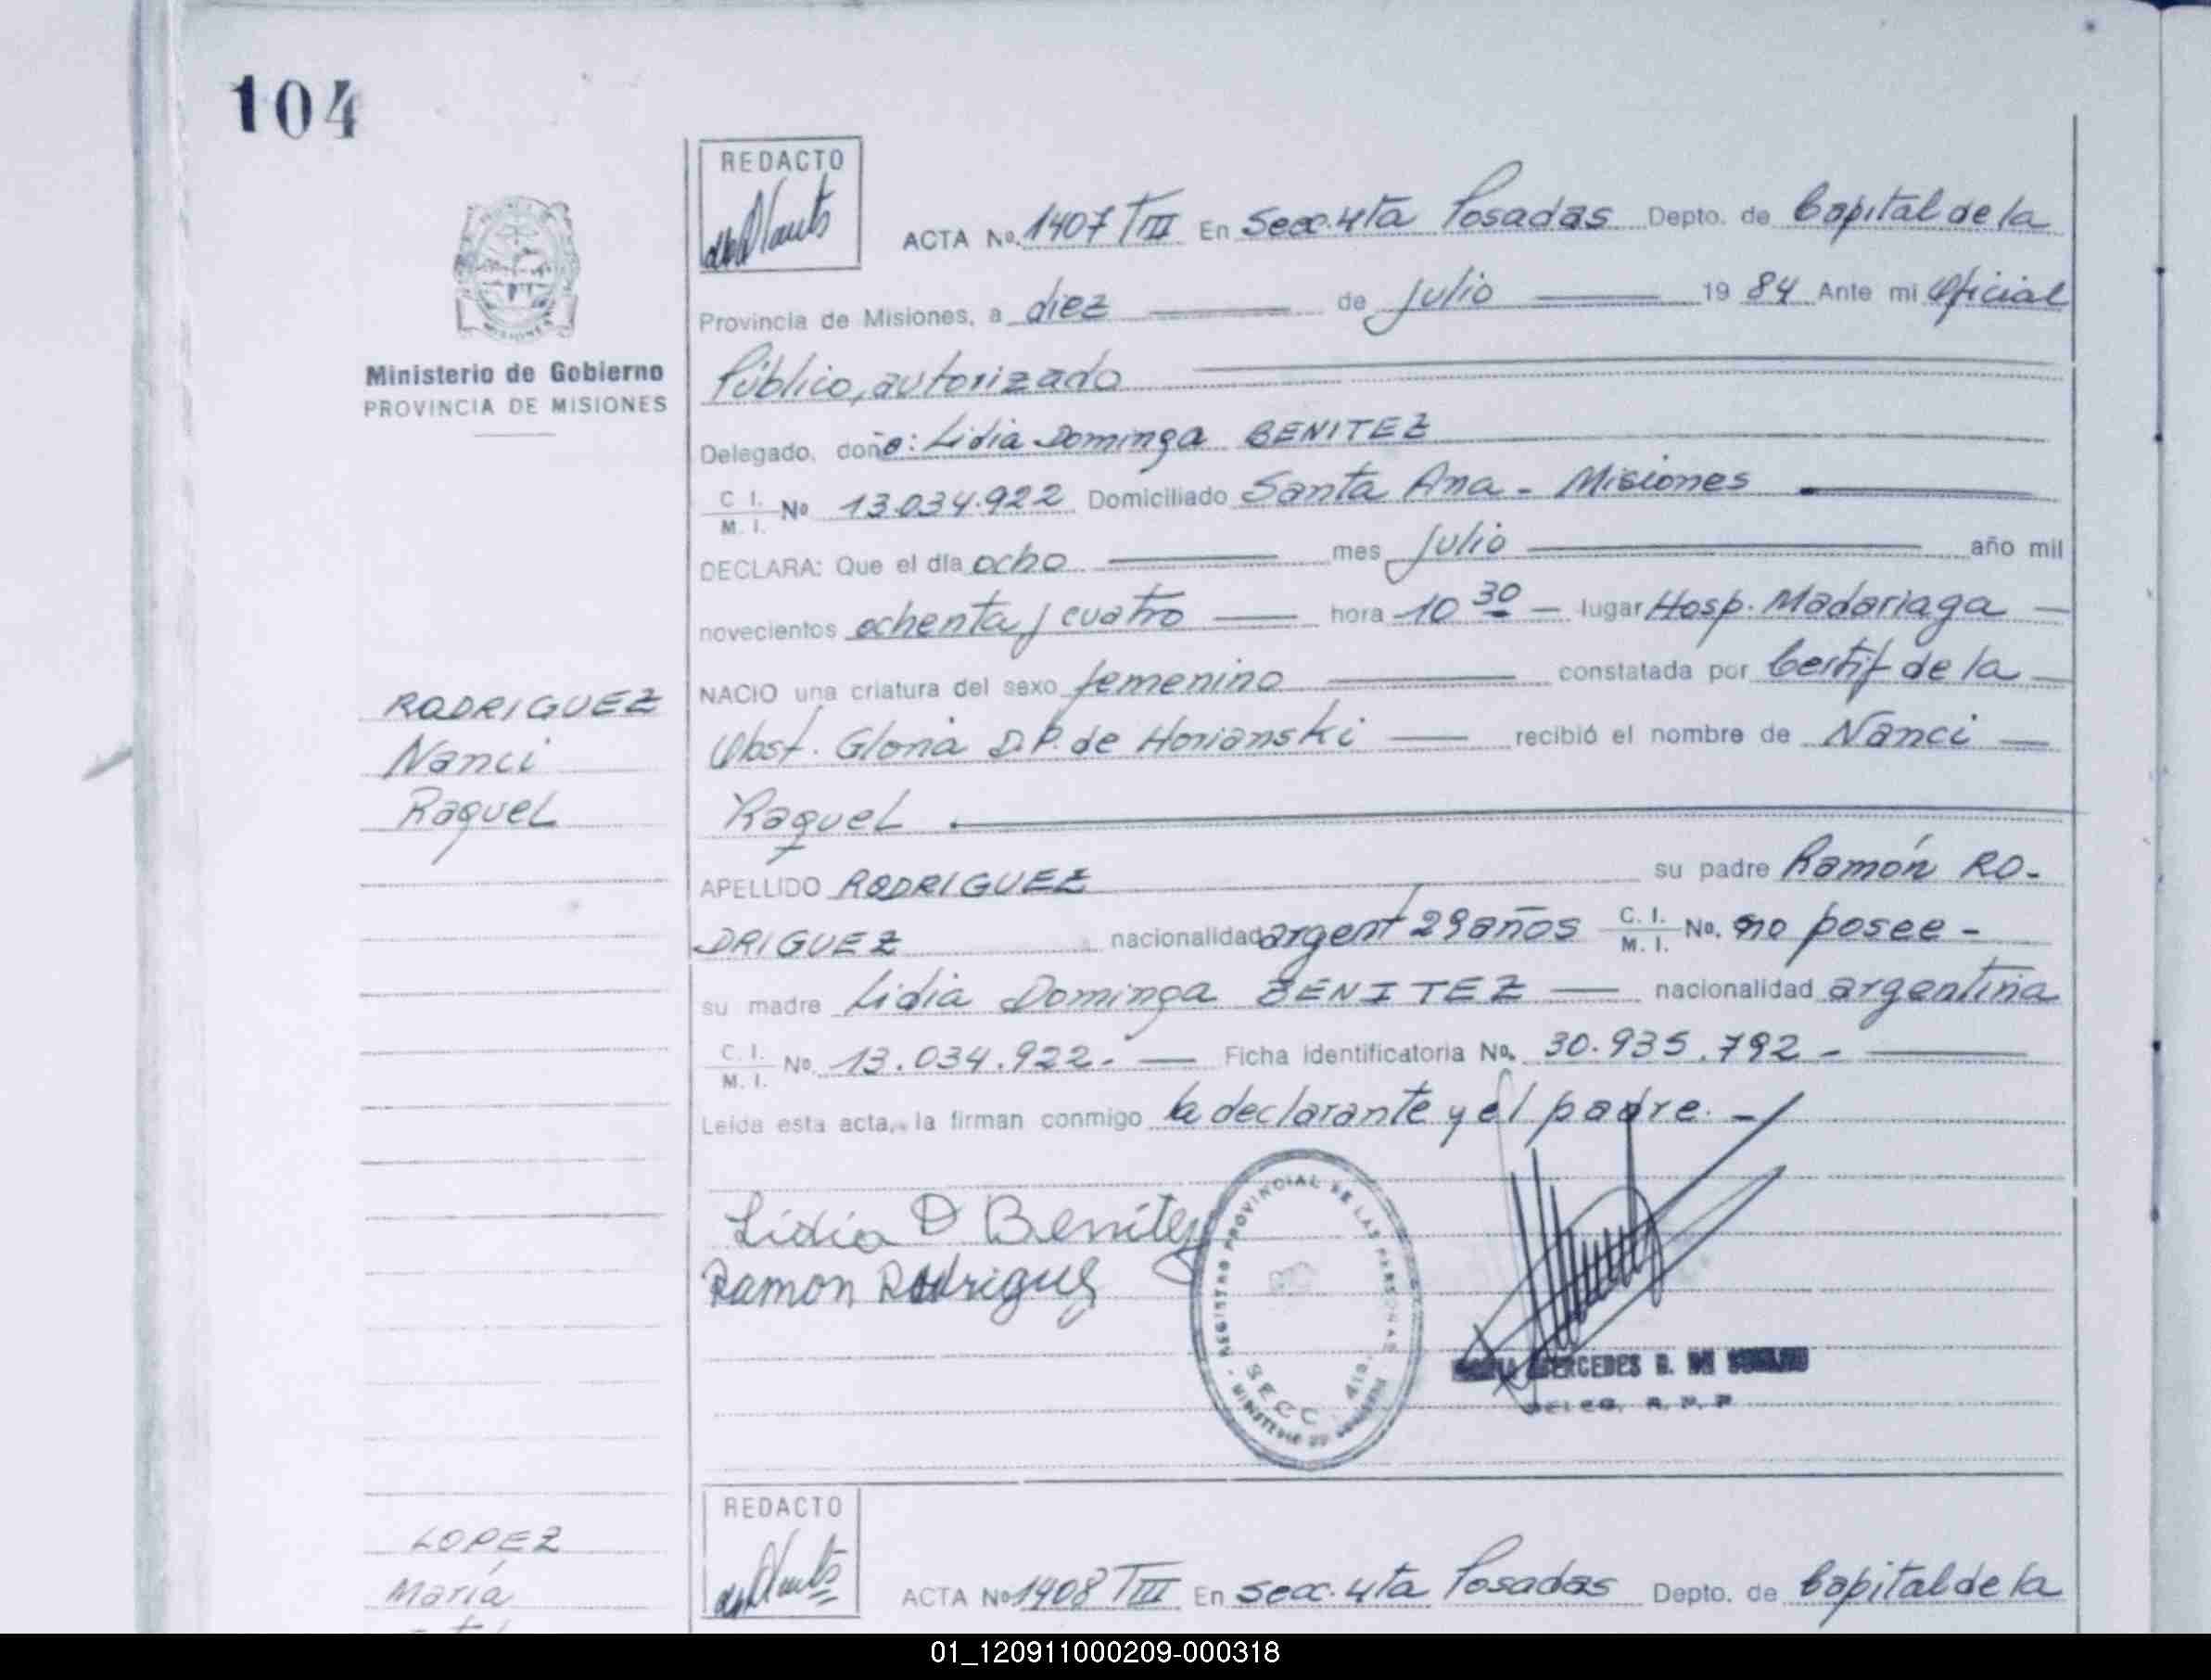 104
REDACTO
ACTA No. 1407 TIII En Secc. 4ta Posadas Depto. de Capital de la
Provincia de Misiones, a diez de Julio 1984 Ante mi Oficial
Ministerio de Gobierno
PROVINCIA DE MISIONES
Público, autorizado
Delegado, doña: Lidia Dominga BENITEZ
C I. M. I. No 13.034.922 Domiciliado Santa Ana - Misiones
DECLARA: Que el día ocho mes Julio año mil
novecientos ochenta y cuatro hora 10 30 lugar Hosp. Madariaga
RODRIGUEZ
Nanci
Raquel
NACIO una criatura del sexo femenino constatada por Certif de la
Obst. Gloria D.P. de Horianski recibió el nombre de Nanci
Raquel
APELLIDO RODRIGUEZ su padre Ramón RO-
DRIGUEZ nacionalidad argent 29 años C. I. M. I. No. no posee -
su madre Lidia Dominga BENITEZ nacionalidad argentina
C. I. M. I. No. 13.034.922.- Ficha identificatoria No. 30.935.792 -
Leída esta acta, la firman conmigo la declarante y el padre. -
Lidia D Benitez
Ramon Rodriguez
REGISTRO PROVINCIAL DE LAS PERSONAS
SECC. 4ta.
MINISTERIO DE GOBIERNO
MERCEDES
DELEG. R. P. P
REDACTO
LOPEZ
María
ACTA No 1408 TIII En Secc. 4ta Posadas Depto. de Capital de la
01_120911000209-000318